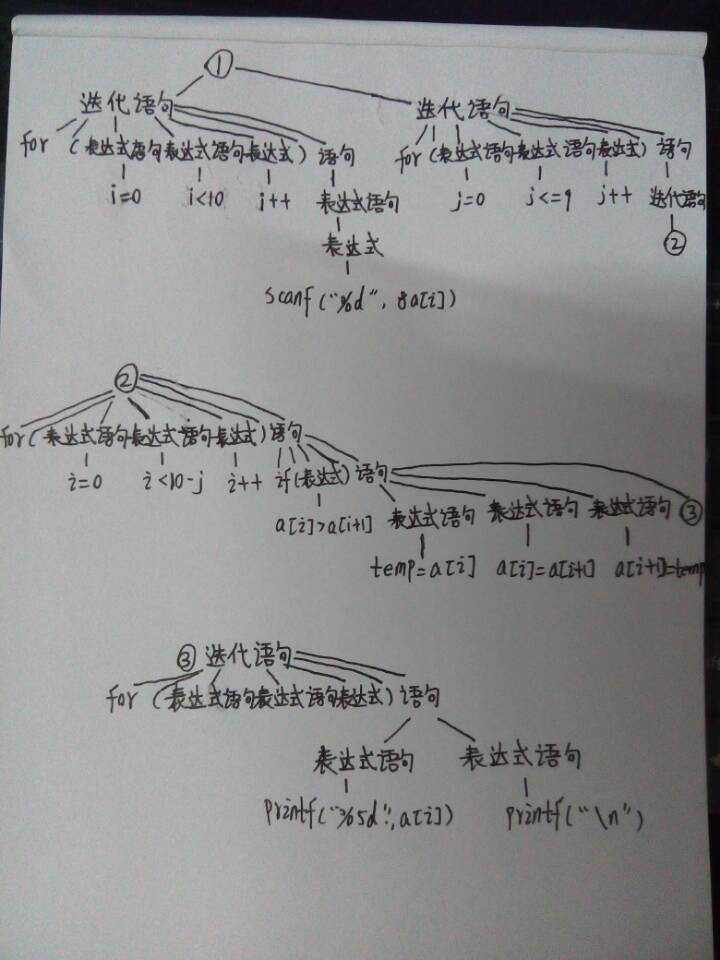 ①
迭代语句 迭代语句
for (表达式语句表达式语句表达式) 语句 for (表达式语句表达式语句表达式) 语句
i=0 i<10 i++ 表达式语句 j=0 j<=9 j++ 迭代语句
表达式 ②
scanf("%d", &a[i])
②
for (表达式语句表达式语句表达式) 语句
i=0 i<10-j i++ if(表达式) 语句
a[i]>a[i+1] 表达式语句 表达式语句 表达式语句 ③
temp=a[i] a[i]=a[i+1] a[i+1]=temp
③ 迭代语句
for (表达式语句表达式语句表达式) 语句
表达式语句 表达式语句
printf("%5d", a[i]) printf("\n")